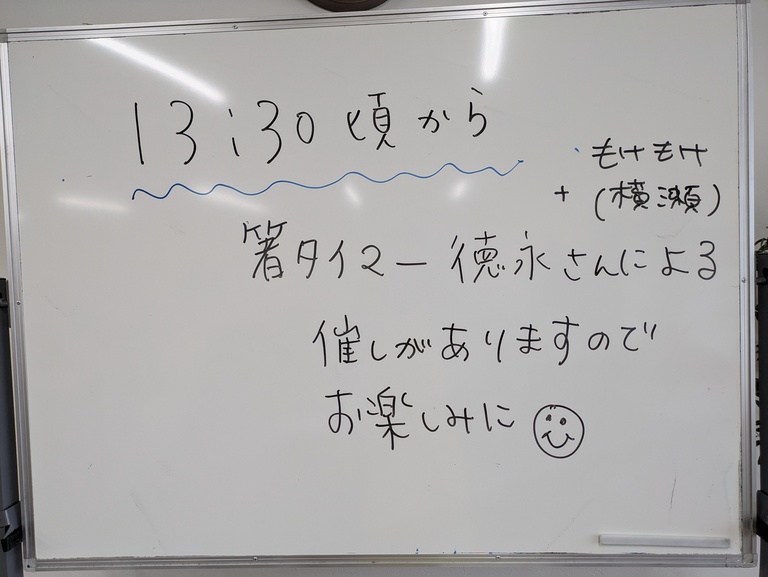 13:30頃から
・もけもけ
+ (横瀬)
箸タイマー徳永さんによる
催しがありますので
お楽しみに